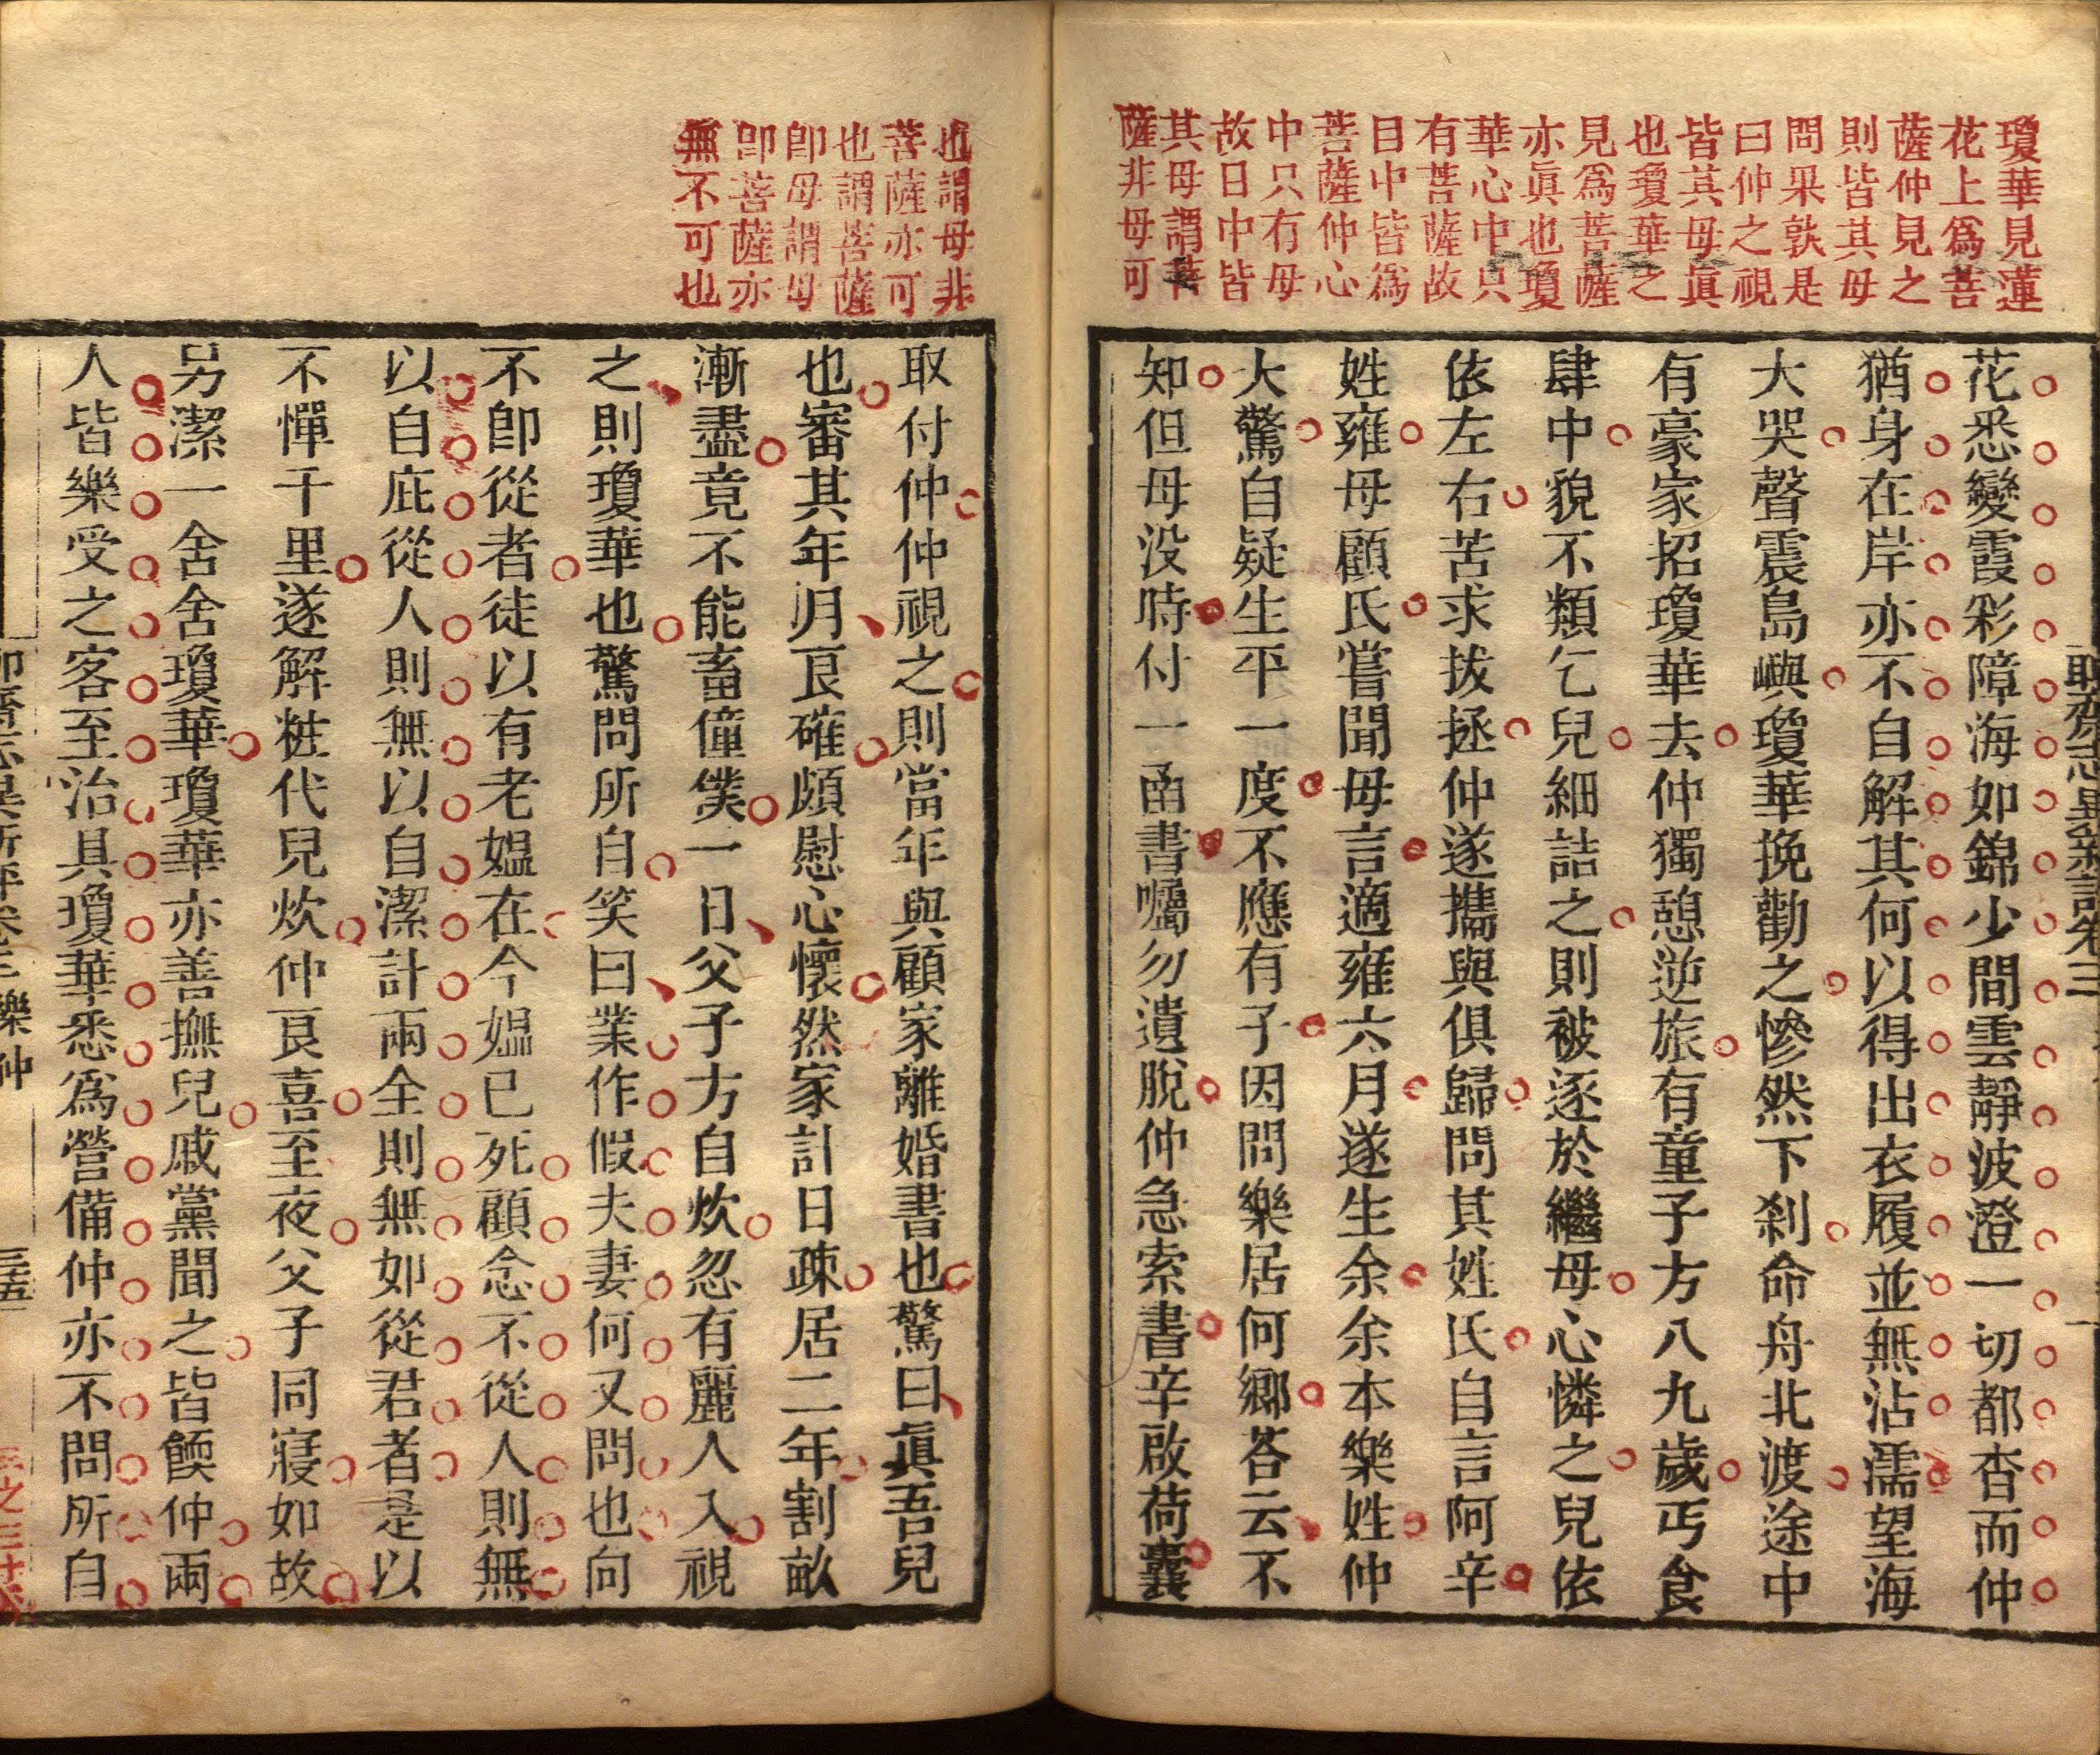 瓊華見蓮
花上爲菩
薩仲見之
則皆其母
問果孰是
曰仲之視
皆其母眞
也瓊華之
見爲菩薩
亦眞也瓊
華心中只
有菩薩故
目中皆爲
菩薩仲心
中只有母
故目中皆
其母謂菩
薩非母可
花悉變霞彩障海如錦少間雲靜波澄一切都杳而仲
猶身在岸亦不自解其何以得出衣履並無沾濡望海
大哭聲震島嶼瓊華挽勸之慘然下刹命舟北渡途中
有豪家招瓊華去仲獨憩逆旅有童子方八九歲丐食
肆中貌不類乞兒細詰之則被逐於繼母心憐之兒依
依左右苦求拔拯仲遂攜與俱歸問其姓氏自言阿辛
姓雍母顧氏嘗聞母言適雍六月遂生余余本樂姓仲
大驚自疑生平一度不應有子因問樂居何鄉荅云不
知但母没時付一函書囑勿遺脫仲急索書辛啟荷囊
也謂母非
菩薩亦可
也謂菩薩
卽母謂母
卽菩薩亦
無不可也
取付仲仲視之則當年與顧家離婚書也驚曰眞吾兒
也審其年月良確頗慰心懷然家計日疎居二年割畝
漸盡竟不能畜僮僕一日父子方自炊忽有麗人入視
之則瓊華也驚問所自笑曰業作假夫妻何又問也向
不卽從者徒以有老媼在今媼已死顧念不從人則無
以自庇從人則無以自潔計兩全則無如從君者是以
不憚千里遂解粧代兒炊仲良喜至夜父子同寢如故
另潔一舍舍瓊華瓊華亦善撫兒戚黨聞之皆餪仲兩
人皆樂受之客至治具瓊華悉爲營備仲亦不問所自
樂仲
三五